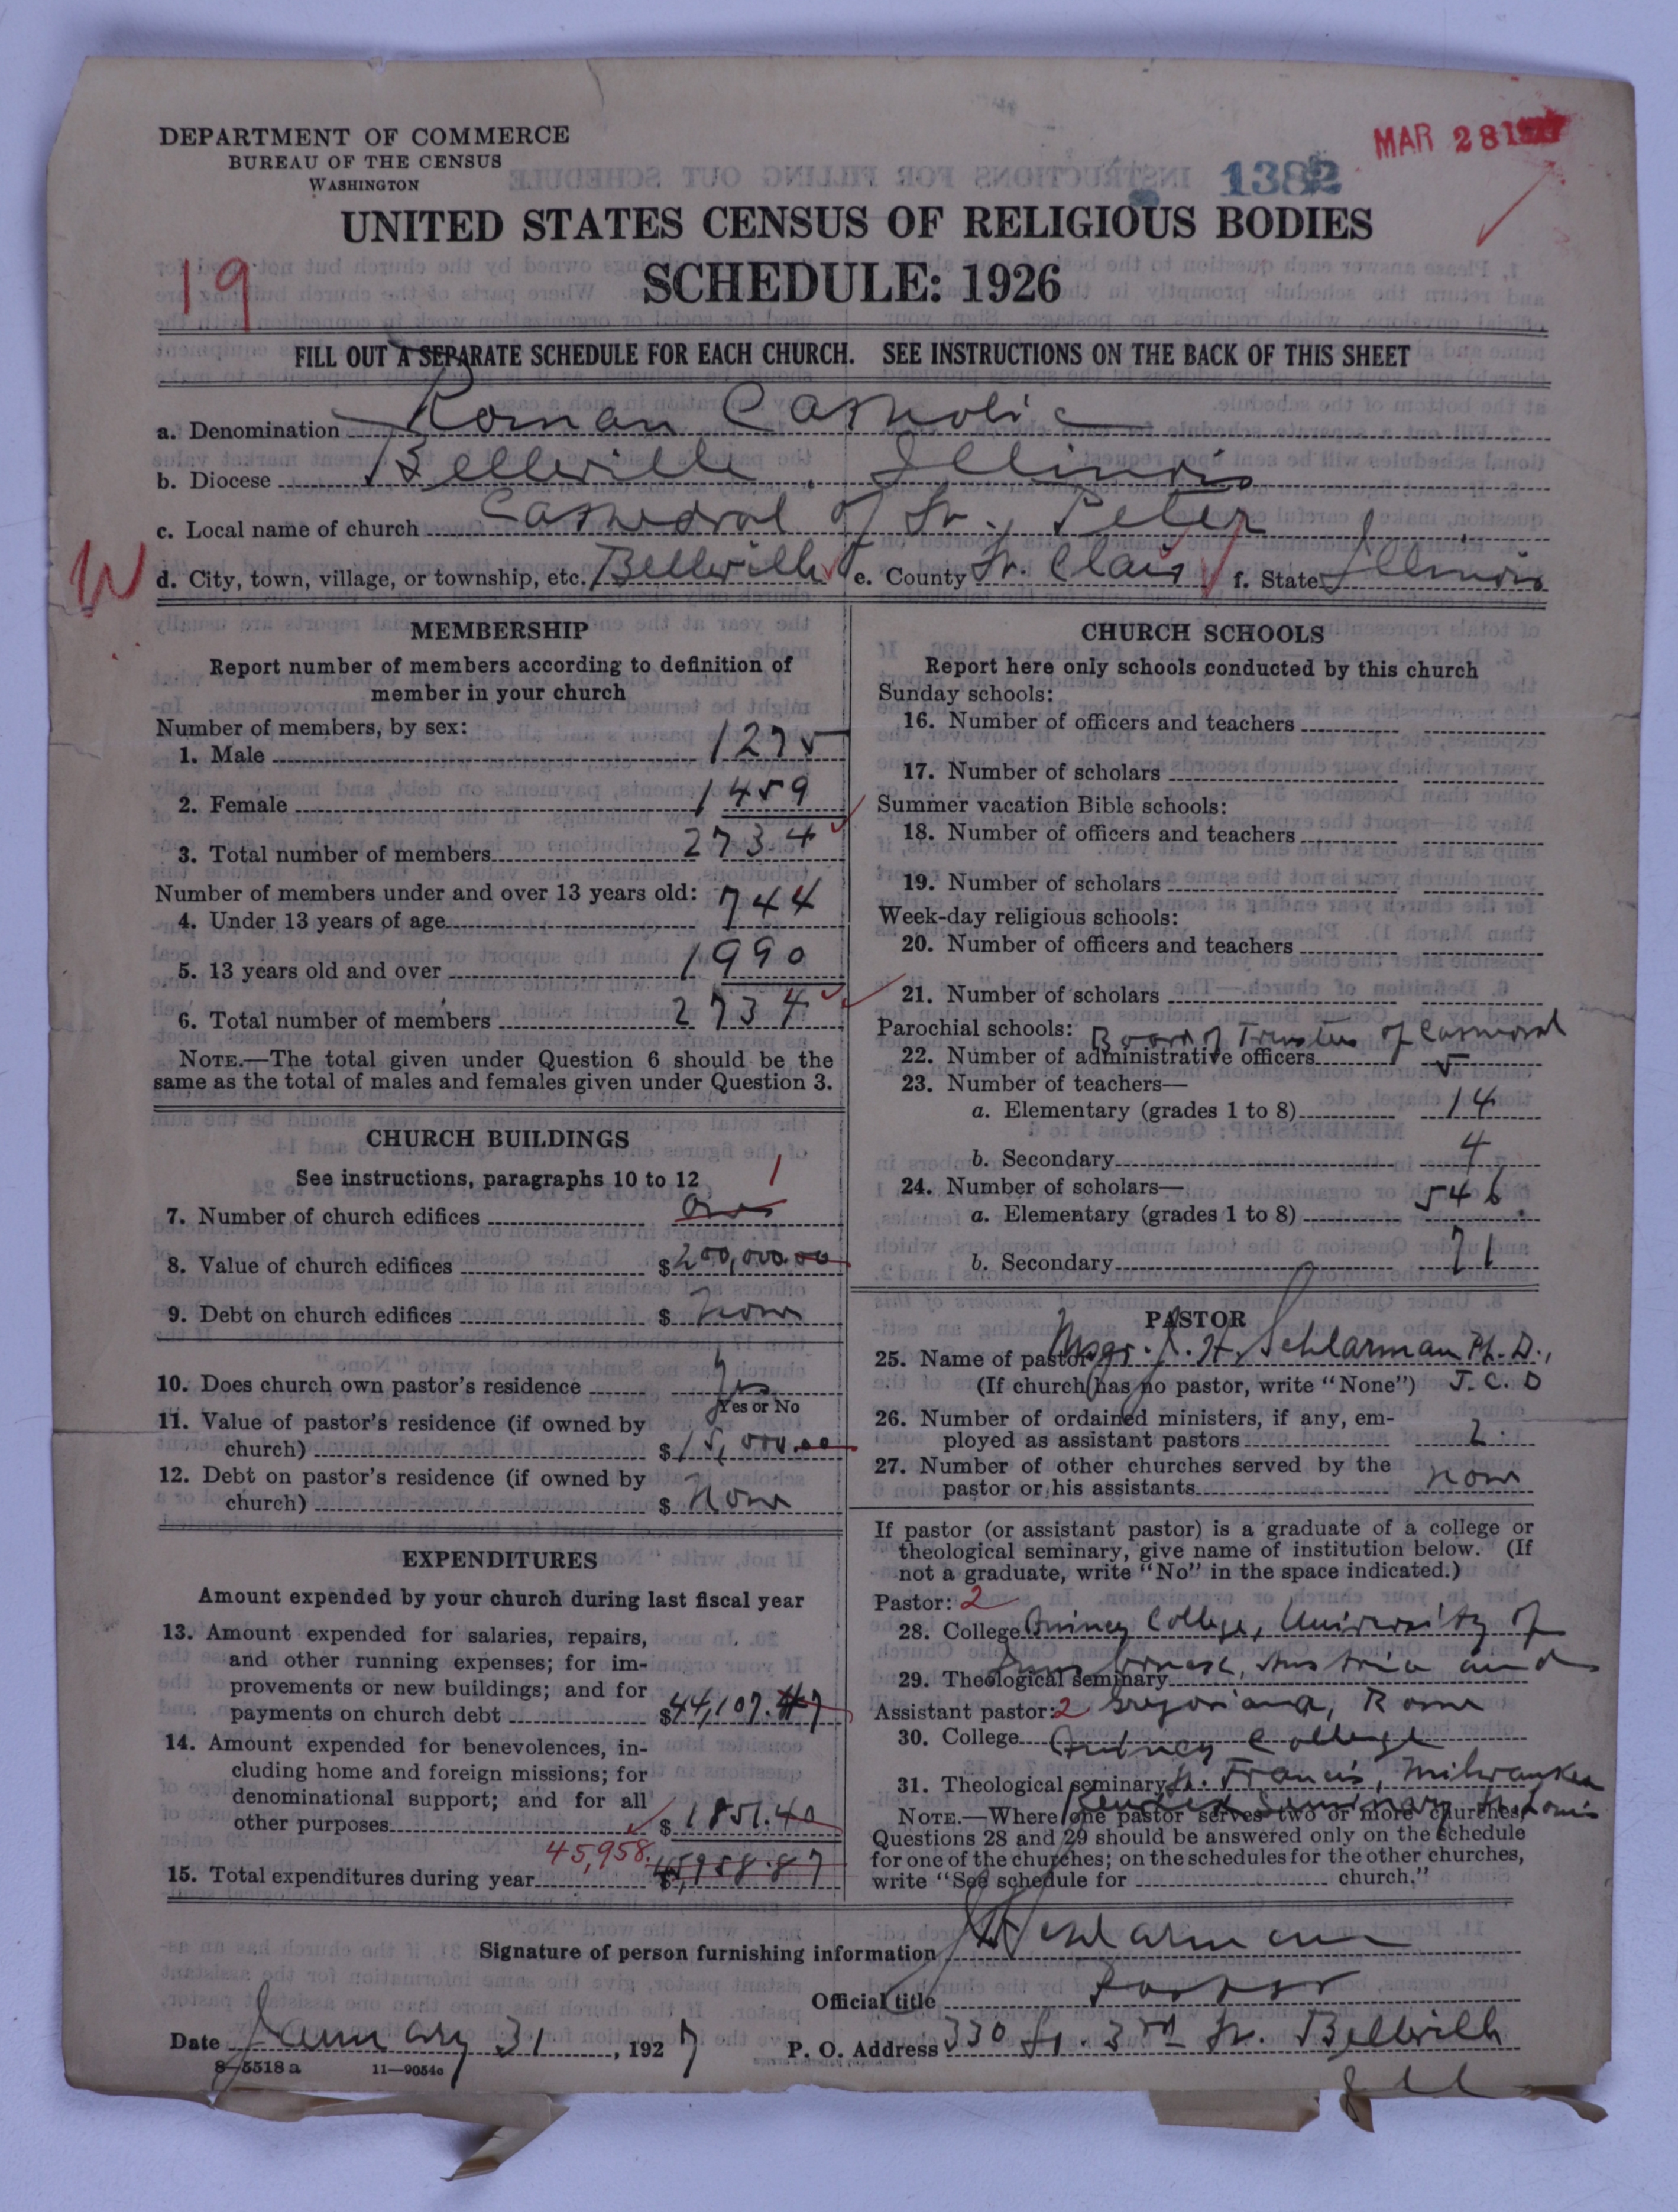 DEPARTMENT OF COMMERCE
BUREAU OF THE CENSUS
WASHINGTON
1382
MAR 28
UNITED STATES CENSUS OF RELIGIOUS BODIES
SCHEDULE: 1926
19
FILL OUT A SEPARATE SCHEDULE FOR EACH CHURCH. SEE INSTRUCTIONS ON THE BACK OF THIS SHEET
a. Denomination Roman Catholic
b. Diocese Belleville, Illinois
c. Local name of church Cathedral of St. Peter
W
d. City, town, village, or township, etc. Belleville e. County St. Clair f. State Illinois
MEMBERSHIP
Report number of members according to definition of
member in your church
Number of members, by sex:
1. Male 1275
2. Female 1459
3. Total number of members 2734
Number of members under and over 13 years old:
4. Under 13 years of age 744
5. 13 years old and over 1990
6. Total number of members 2734
NOTE.—The total given under Question 6 should be the
same as the total of males and females given under Question 3.
CHURCH BUILDINGS
See instructions, paragraphs 10 to 12
1
7. Number of church edifices One
8. Value of church edifices $200,000.00
9. Debt on church edifices $ None
10. Does church own pastor's residence Yes
Yes or No
11. Value of pastor's residence (if owned by
church) $15,000.00
12. Debt on pastor's residence (if owned by
church) $ None
EXPENDITURES
Amount expended by your church during last fiscal year
13. Amount expended for salaries, repairs,
and other running expenses; for im-
provements or new buildings; and for
payments on church debt $44,107.47
14. Amount expended for benevolences, in-
cluding home and foreign missions; for
denominational support; and for all
other purposes $1851.40
45,958.
15. Total expenditures during year $45,958.87
CHURCH SCHOOLS
Report here only schools conducted by this church
Sunday schools:
16. Number of officers and teachers
17. Number of scholars
Summer vacation Bible schools:
18. Number of officers and teachers
19. Number of scholars
Week-day religious schools:
20. Number of officers and teachers
21. Number of scholars
Parochial schools: Board of Trustees of Cathedral
22. Number of administrative officers 5
23. Number of teachers—
a. Elementary (grades 1 to 8) 14
b. Secondary 4
24. Number of scholars—
a. Elementary (grades 1 to 8) 546
b. Secondary 71
PASTOR
25. Name of pastor Msgr. J. H. Schlarman Ph. D.,
(If church has no pastor, write "None") J. C. D
26. Number of ordained ministers, if any, em-
ployed as assistant pastors 2
27. Number of other churches served by the
pastor or his assistants None
If pastor (or assistant pastor) is a graduate of a college or
theological seminary, give name of institution below. (If
not a graduate, write "No" in the space indicated.)
Pastor: 2
28. College Quincy College, University of
29. Theological seminary Innsbruck, Austria and
Assistant pastor: 2 Gregoriana, Rome
30. College Quincy College
31. Theological seminary St. Francis, Milwaukee
Kenrick Seminary St. Louis
NOTE.—Where one pastor serves two or more churches,
Questions 28 and 29 should be answered only on the schedule
for one of the churches; on the schedules for the other churches,
write "See schedule for church."
Signature of person furnishing information J H Schlarman
Official title Pastor
Date January 31, 1927 P. O. Address 330 So. 3rd St. Belleville
Ill
8-5518 a 11—9054c